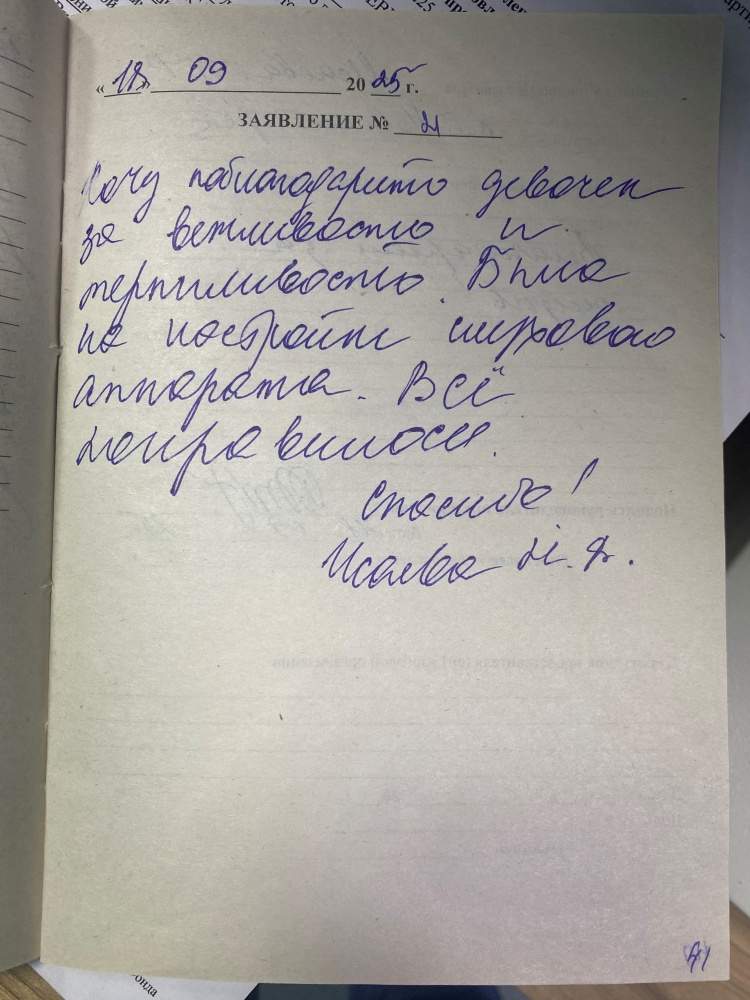 «18» 09 2025 г.
ЗАЯВЛЕНИЕ № 21
Хочу поблагодарить девочек
за вежливость и
терпиливость. Была
на настройке слухового
аппарата. Всё
понравилось.
Спасибо!
Исаева Н. Я.
41